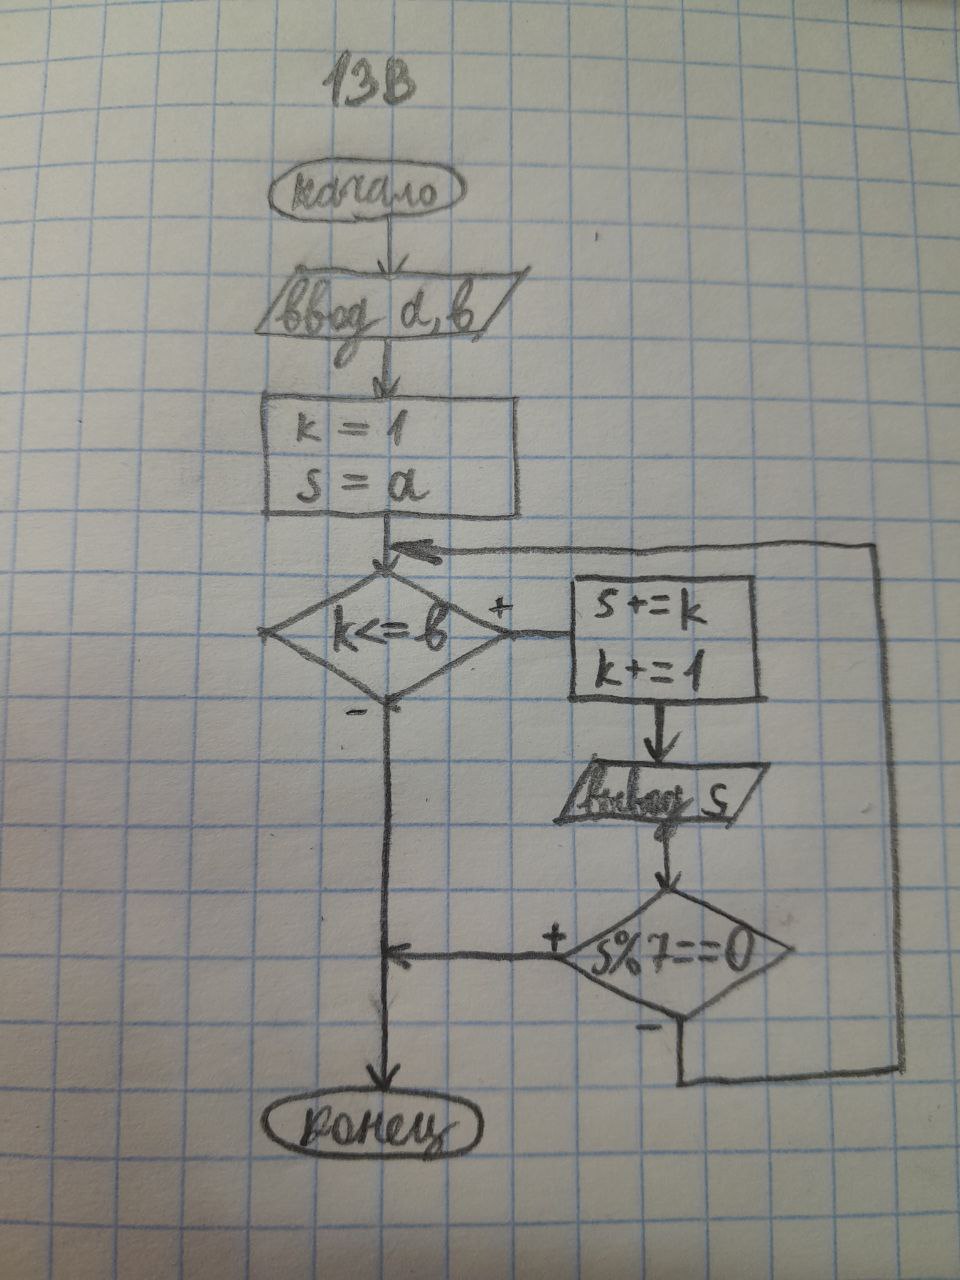 13в
начало
ввод a, в
k = 1
s = a
k<=в
+
-
s+=k
k+=1
вывод s
s%7==0
+
-
конец